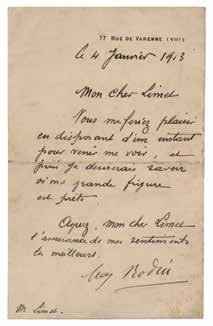 77 RUE DE VARENNE (VIIe)
le 4 Janvier 1913
Mon cher Limet
Vous me feriez plaisir
en disposant d'un instant
pour venir me voir, et
puis je desirerais savoir
si ma grande figure
est prête
Agréez, mon cher Limet
l'assurance de mes sentiments
les meilleurs.
Aug Rodin
M. Limet.